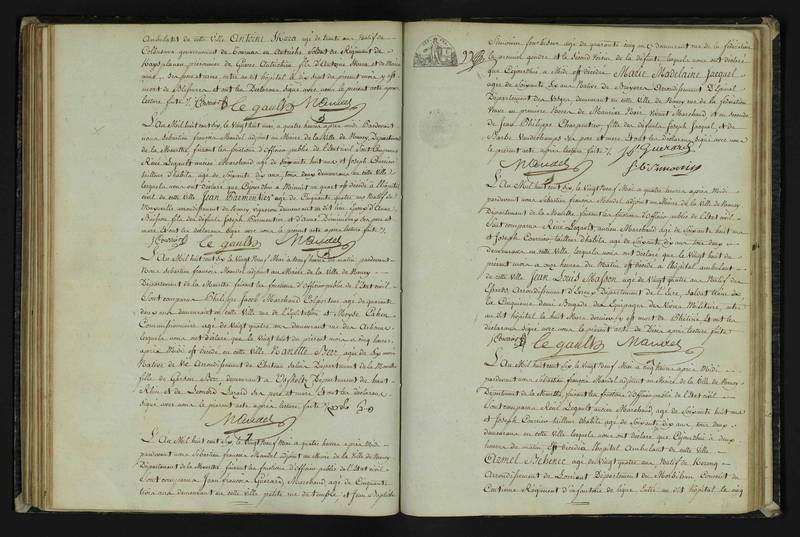 Ambulant de cette Ville Antoine Mora agé de trente ans Natif de
gouvernement de en Autriche Soldat du Régiment de
prisonnier de Guerre Autrichien fils d'Antoine Mora et de Marie
Ses pere et mere, entré au dit hôpital le dix Sept du présent mois y est
mort de Blessures et ont les Declarans Signé avec nous le présent acte après
lecture faite
Le gault Mandel
L'An Mil huit cent Six, le Vingt huit Mai a quatre heures après Midi Pardevant
nous Sébastien françois Mandel adjoint au Maire de la Ville de Nancy, Département
de la Meurthe, faisant les fonctions d'officier public de l'état civil Sont Comparus
Réné Legault ancien Marchand agé de Soixante huit ans et Joseph Courrier
tailleur d'habits, agé de Soixante dix ans, tous deux demeurans en cette Ville
lesquels nous ont déclaré que Cejourd'hui a Minuit un quart est décédé a l'hôpital
civil de cette Ville, Jean Parmentier agé de Cinquante quatre ans Natif de
arrondissement de Nancy vigneron demeurant au dit lieu Epoux d'Anne
fils des défunts Joseph Parmentier et d'Anne Ses pere et
mere, et ont les déclarans Signé avec nous le présent acte après lecture faite
Courrier Le gault Mandel
L'An Mil huit cent Six, le Vingt Neuf Mai a heures du matin, pardevant
nous Sébastien françois Mandel adjoint au Maire de la Ville de Nancy
Département de la Meurthe faisant les fonctions d'officier public de l'Etat civil
Sont comparus Philippe Jacob Marchand Colporteur agé de quarante
deux ans demeurant en cette Ville rue de l'Equitation et Moyse Cahen
Commissionnaire agé de Vingt quatre ans demeurant rue des Artisans
lesquels nous ont déclaré que le Vingt huit du présent mois a cinq heures
après Midi est décédée en cette Ville, Nanette Beer, agée de dix ans
Native de Vic Arrondissement de Château Salins Département de la Meurthe
fille de Gerson Beer, demeurant a Département du haut
Rhin et de Léonide Ses pere et mere et ont les déclarans
Signé avec nous le présent acte après lecture faite
Mandel
L'An Mil huit cent Six, le Vingt Neuf Mai a quatre heures après Midi
pardevant nous Sébastien françois Mandel adjoint au Maire de la Ville de Nancy
Département de la Meurthe faisant les fonctions d'officier public de l'état civil
Sont comparus Jean françois Guérard Marchand, agé de Cinquante
trois ans demeurant en cette Ville petite rue du temple et Jean Baptiste
Simonin fourbisseur agé de quarante cinq ans demeurant rue de la fédération
le premier gendre, et le Second Neveu de la défunte, lesquels nous ont déclaré
que Cejourd'hui a Midi est décédée Marie Madelaine Jacquel
agée de Soixante dix ans Native de Bruyeres Arrondissement d'Epinal
Département des Vosges, demeurant en cette Ville de Nancy rue de la fédération
Veuve en premiere Noces de Maurice Noir, Vivant Marchand et en Secondes
de Jean Philippe Charpentier, fille des défunts Joseph Jacquel et de
Barbe Ses pere et mere. Et ont les déclarans Signé avec nous
le présent acte après lecture faite
Guerard
Mandel Simonin
L'An Mil huit cent Six, le Vingt Neuf Mai a quatre heures après Midi
pardevant nous Sébastien François Mandel adjoint au Maire de la Ville de Nancy
Département de la Meurthe faisant les fonctions d'officier public de l'état civil
Sont comparus Réné Legault ancien Marchand agé de Soixante huit ans
et Joseph Courrier tailleur d'habits, agé de Soixante dix ans tous deux
demeurans en cette Ville, lesquels nous ont déclaré, que le Vingt huit du
présent mois a onze heures du Matin est décédé a l'hôpital ambulant
de cette Ville Jean Louis Masson agé de Vingt quatre ans Natif des
Arrondissement Département de Soldat dans
la Cinquieme demi Brigade des Equipages des Vivres Militaires, entré
au dit hôpital le huit Mars dernier, y est mort de Phtisie et ont les
déclarans Signé avec nous le présent acte de Décès après lecture faite
Courrier Le gault Mandel
L'An Mil huit cent Six, le Vingt Neuf Mai a heures après Midi
pardevant nous Sébastien françois Mandel adjoint au Maire de la Ville de Nancy
Département de la Meurthe, faisant les fonctions d'officier public de l'état civil
Sont comparus Réné Legault ancien Marchand, agé de Soixante huit ans
et Joseph Courrier tailleur d'habits agé de Soixante dix ans, tous deux
demeurans en cette Ville lesquels nous ont déclaré que Cejourd'hui a deux
heures du matin est décédé a l'hôpital Ambulant de cette Ville
agé de Vingt quatre ans Natif de
Arrondissement de Lorient Département du Morbihan Conscrit du
Centieme Régiment d'infanterie de ligne Entré au dit hôpital le cinq